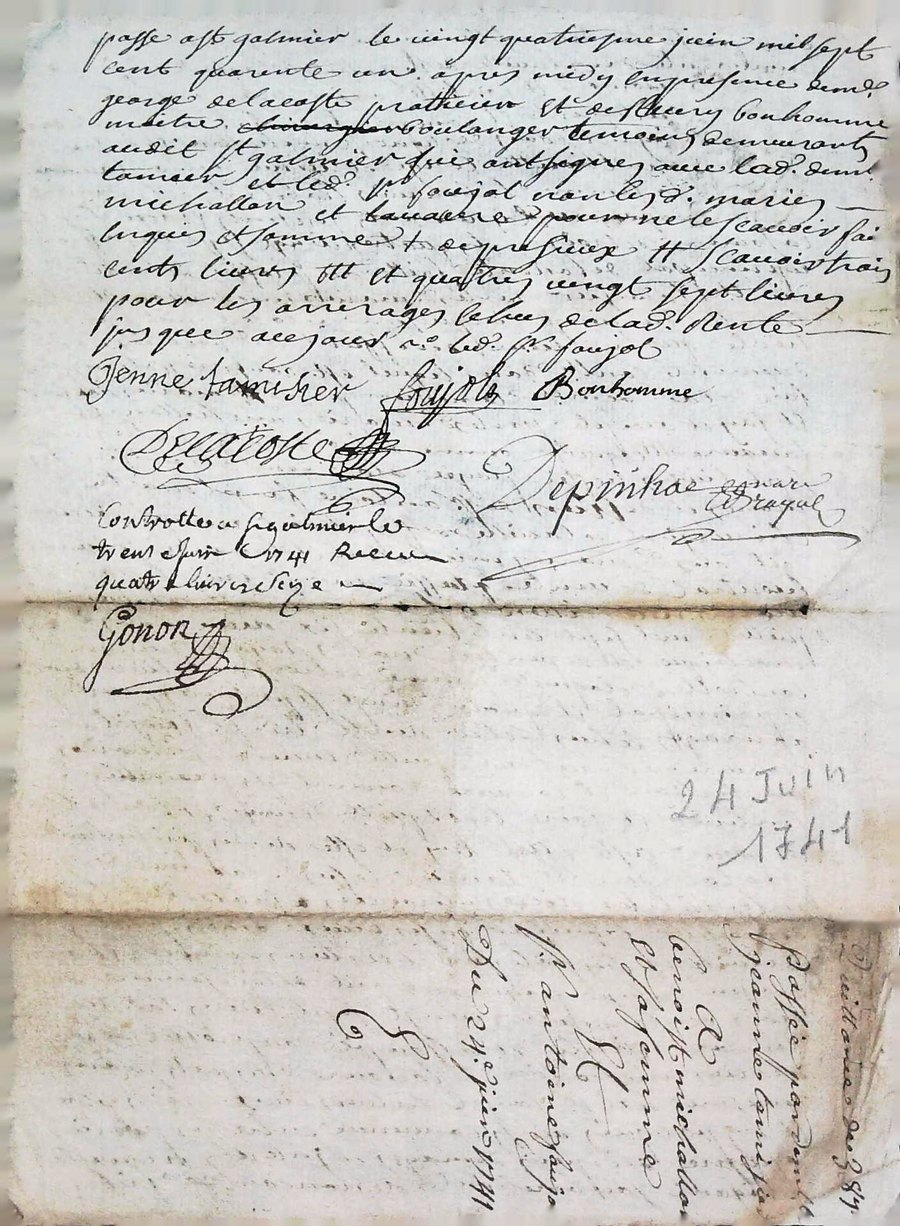 passe a st galmier le vingt quatriesme juin mil sept
cent quarente un apres midy en presence de me.
george delacoste praticien et de fleury bonhomme
maitre chirurgien boulanger temoins demeurants
audit st galmier qui ont signes avec lad. dem.lle
tamier et led. sr. foujol non lesd. maries
michallon et pour ne le scavoir fai
enquis et somme + de ...xieux tt scavoir trois
cents livres ttt et quattres vingt sept livres
pour les arrerages echus de lad. Rente
jusque a ce jour led. sr. foujol
Jenne tamisier foujols Bonhomme
Delacoste
Depinhac notaire royal
Controlle a st galmier le
trente juin 1741 Receu
quatre livres seze
Gonon
24 Juin
1741
Quittance de 387.
passée par dem.lle
jeanne tamisier
A
benoist michallon
et sa femme
Et
sr. antoine foujo
Du 24.e juin 1741